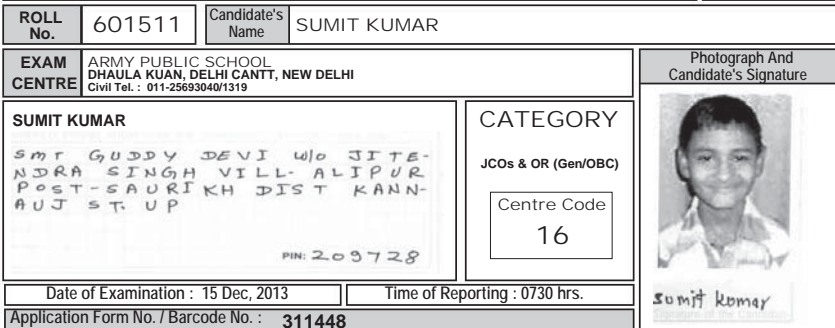 ROLL No. 601511 Candidate's Name SUMIT KUMAR
EXAM CENTRE
ARMY PUBLIC SCHOOL
DHAULA KUAN, DELHI CANTT, NEW DELHI
Civil Tel. : 011-25693040/1319
Photograph And
Candidate's Signature
SUMIT KUMAR
SMT GUDDY DEVI W/o JITE-
NDRA SINGH VILL- ALIPUR
POST-SAURIKH DIST KANN-
AUJ ST. UP
PIN: 209728
CATEGORY
JCOs & OR (Gen/OBC)
Centre Code
16
sumit kumar
Signature of the Candidate
Date of Examination : 15 Dec, 2013
Time of Reporting : 0730 hrs.
Application Form No. / Barcode No. : 311448